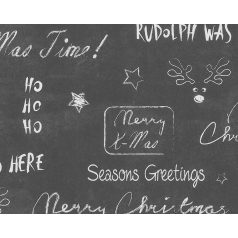 RUDOLPH WAS
Mas Time!
HO
HO
HO
Merry
X-Mas
HERE
Seasons Greetings
Merry Christmas